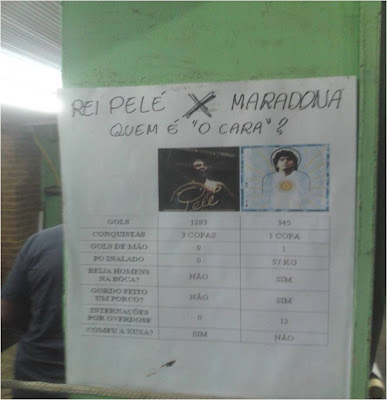 REI PELÉ X MARADONA
QUEM É "O CARA"?
Pelé
GOLS 1283 345
CONQUISTAS 3 COPAS 1 COPA
GOLS DE MÃO 0 1
PO INALADO 0 57 KG
BEIJA HOMENS
NA BOCA? NÃO SIM
GORDO FEITO
UM PORCO? NÃO SIM
INTERNAÇÕES
POR OVERDOSE 0 12
COMEU A XUXA? SIM NÃO